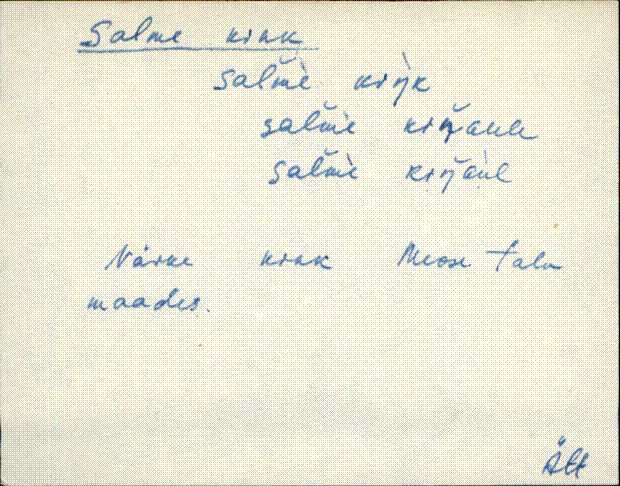 Salme kink
salm̆è kiŋk
salm̆è kiŋ̆aùle
salm̆è kiŋ̆aùl
Väike kink Meose talu
maades.
Ätt